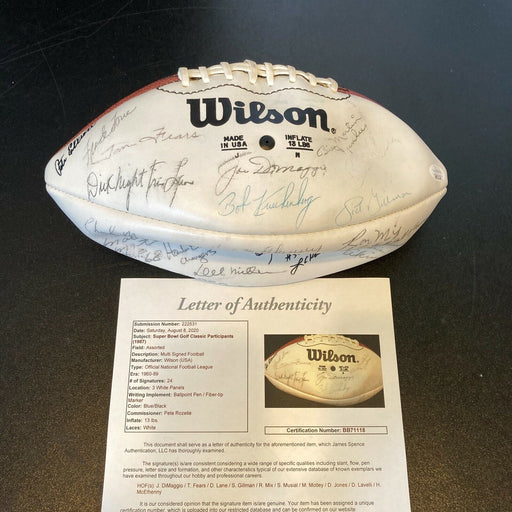 Wilson®
MADE
IN USA
INFLATE
13 LBS
Tom Fears
Joe DiMaggio
Dick Night Train Lane
Bob Kuechenberg
Sid Gillman
Letter of Authenticity
Submission Number: 222531
Date: Saturday, August 8, 2020
Subject: Super Bowl Golf Classic Participants
(1987)
Field: Assorted
Description: Multi Signed Football
Manufacturer: Wilson (USA)
Type: Official National Football League
Era: 1980-89
# of Signatures: 24
Location: 3 White Panels
Writing Implement: Ballpoint Pen / Fiber-tip
Marker
Color: Blue/Black
Commissioner: Pete Rozelle
Inflate: 13 lbs.
Laces: White
Wilson
Certification Number: BB71118
This document shall serve as a letter of authenticity for the aforementioned item, which James Spence
Authentication, LLC has thoroughly examined.
The signature(s) is/are consistent considering a wide range of specific qualities including slant, flow, pen
pressure, letter size and formation, and other characteristics typical of our extensive database of known exemplars we
have examined throughout our hobby and professional careers.
HOF(s): J. DiMaggio / T. Fears / D. Lane / S. Gillman / R. Mix / S. Musial / M. Motley / D. Jones / D. Lavelli / H.
McElhenny
It is our considered opinion that the signature item is/are genuine. Your item has been assigned a unique
certification number, which is uploaded into our restricted database and can be confirmed on our website